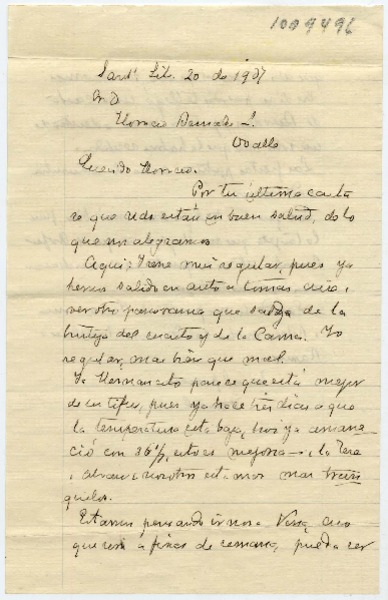 1009496
Sant. Set. 20 de 1937
Sr. D
Horacio L.
Ovalle
Querido Horacio:
Por tu última carta
se que uds están en buen salud, de lo
que nos alegramos
Aqui: Irene mui regular, pues ya
hemos salido en auto a
ver otro panorama que salga de la
del cuarto y de la Cama. Yo
regular, mas bien que mal.
La Hermanita parece que está mejor
de su tifus, pues ya hace tres dias a que
la temperatura esta baja, hoi ya amane-
ció con 36½, esto es mejoria i la
i nosotros estamos mas tran
quilos.
Estamos pensando irnos a
que será a fines de semana, pueda ser